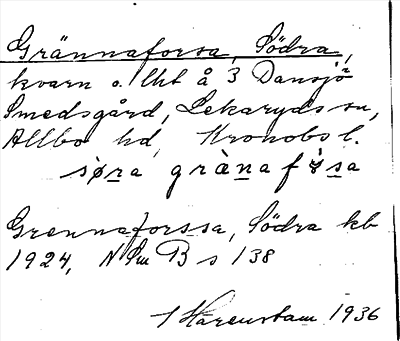 Grännaforsa, Södra,
kvarn o. lht å 3 Dansjö
Smedsgård, Lekaryds sn,
Allbo hd, Kronobs l.
søra gränaf sa
Grennaforssa, Södra kb
1924, N Sm B s 138
Harenstam 1936